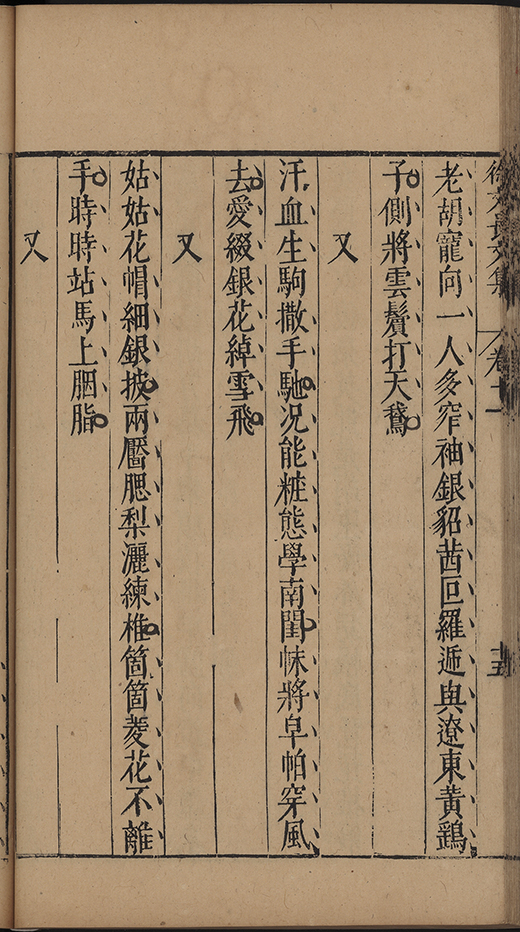 徐文長文集 卷十一 十五
老胡寵向一人多窄袖銀貂茜叵羅遞與遼東黃鷂
子側將雲鬢打天鵝
又
汗血生駒撒手馳况能粧態學南閨帓將皁帕穿風
去愛綴銀花綽雪飛
又
姑姑花帽細銀披兩靨腮梨灑練椎箇箇菱花不離
手時時站馬上胭脂
又